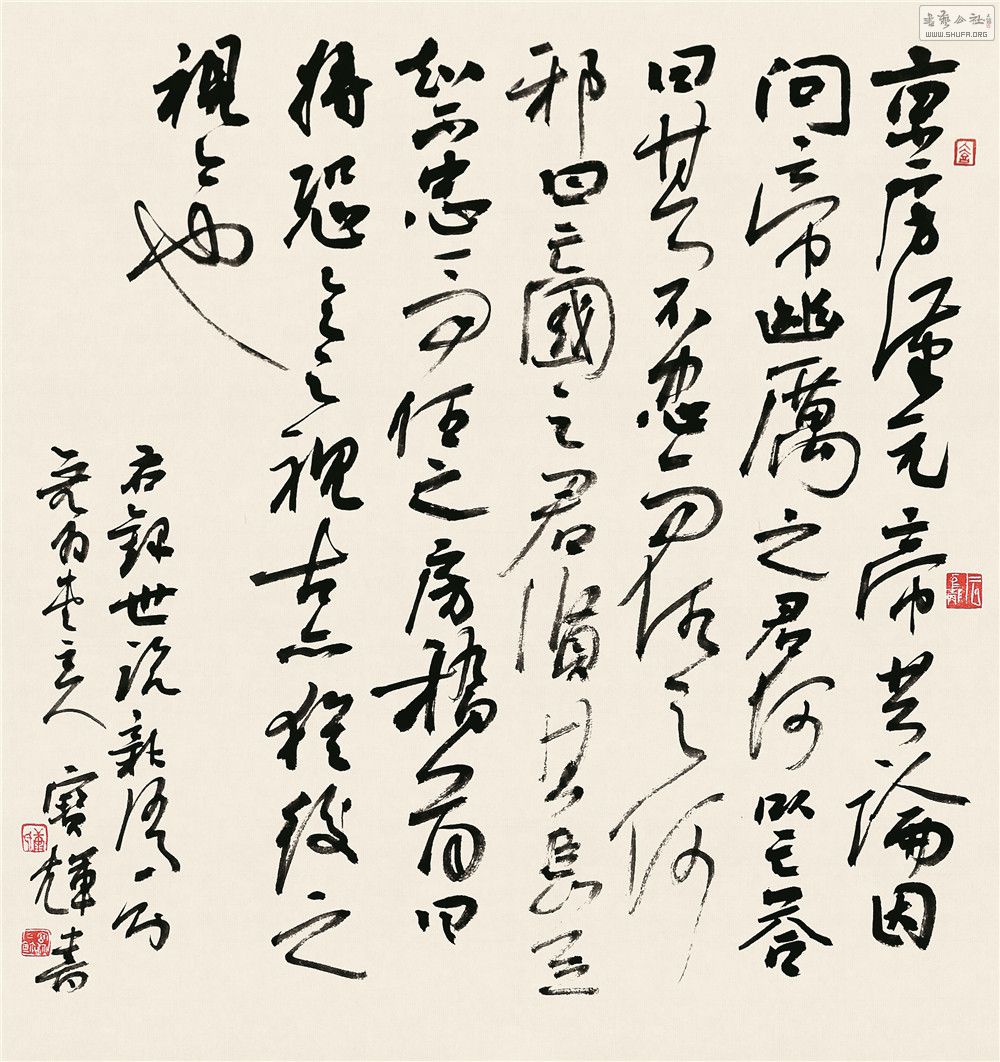 书艺公社
WWW.SHUFA.ORG
京房漢元帝共論因
問帝幽厲之君何以亡答
曰其人不忠而任之何
邪曰亡國之君賢其臣豈
知不忠而任之房稽首曰
將恐今之視古亦猶後之
視今也
右錄世說新語一則
無為堂主人寶輝書